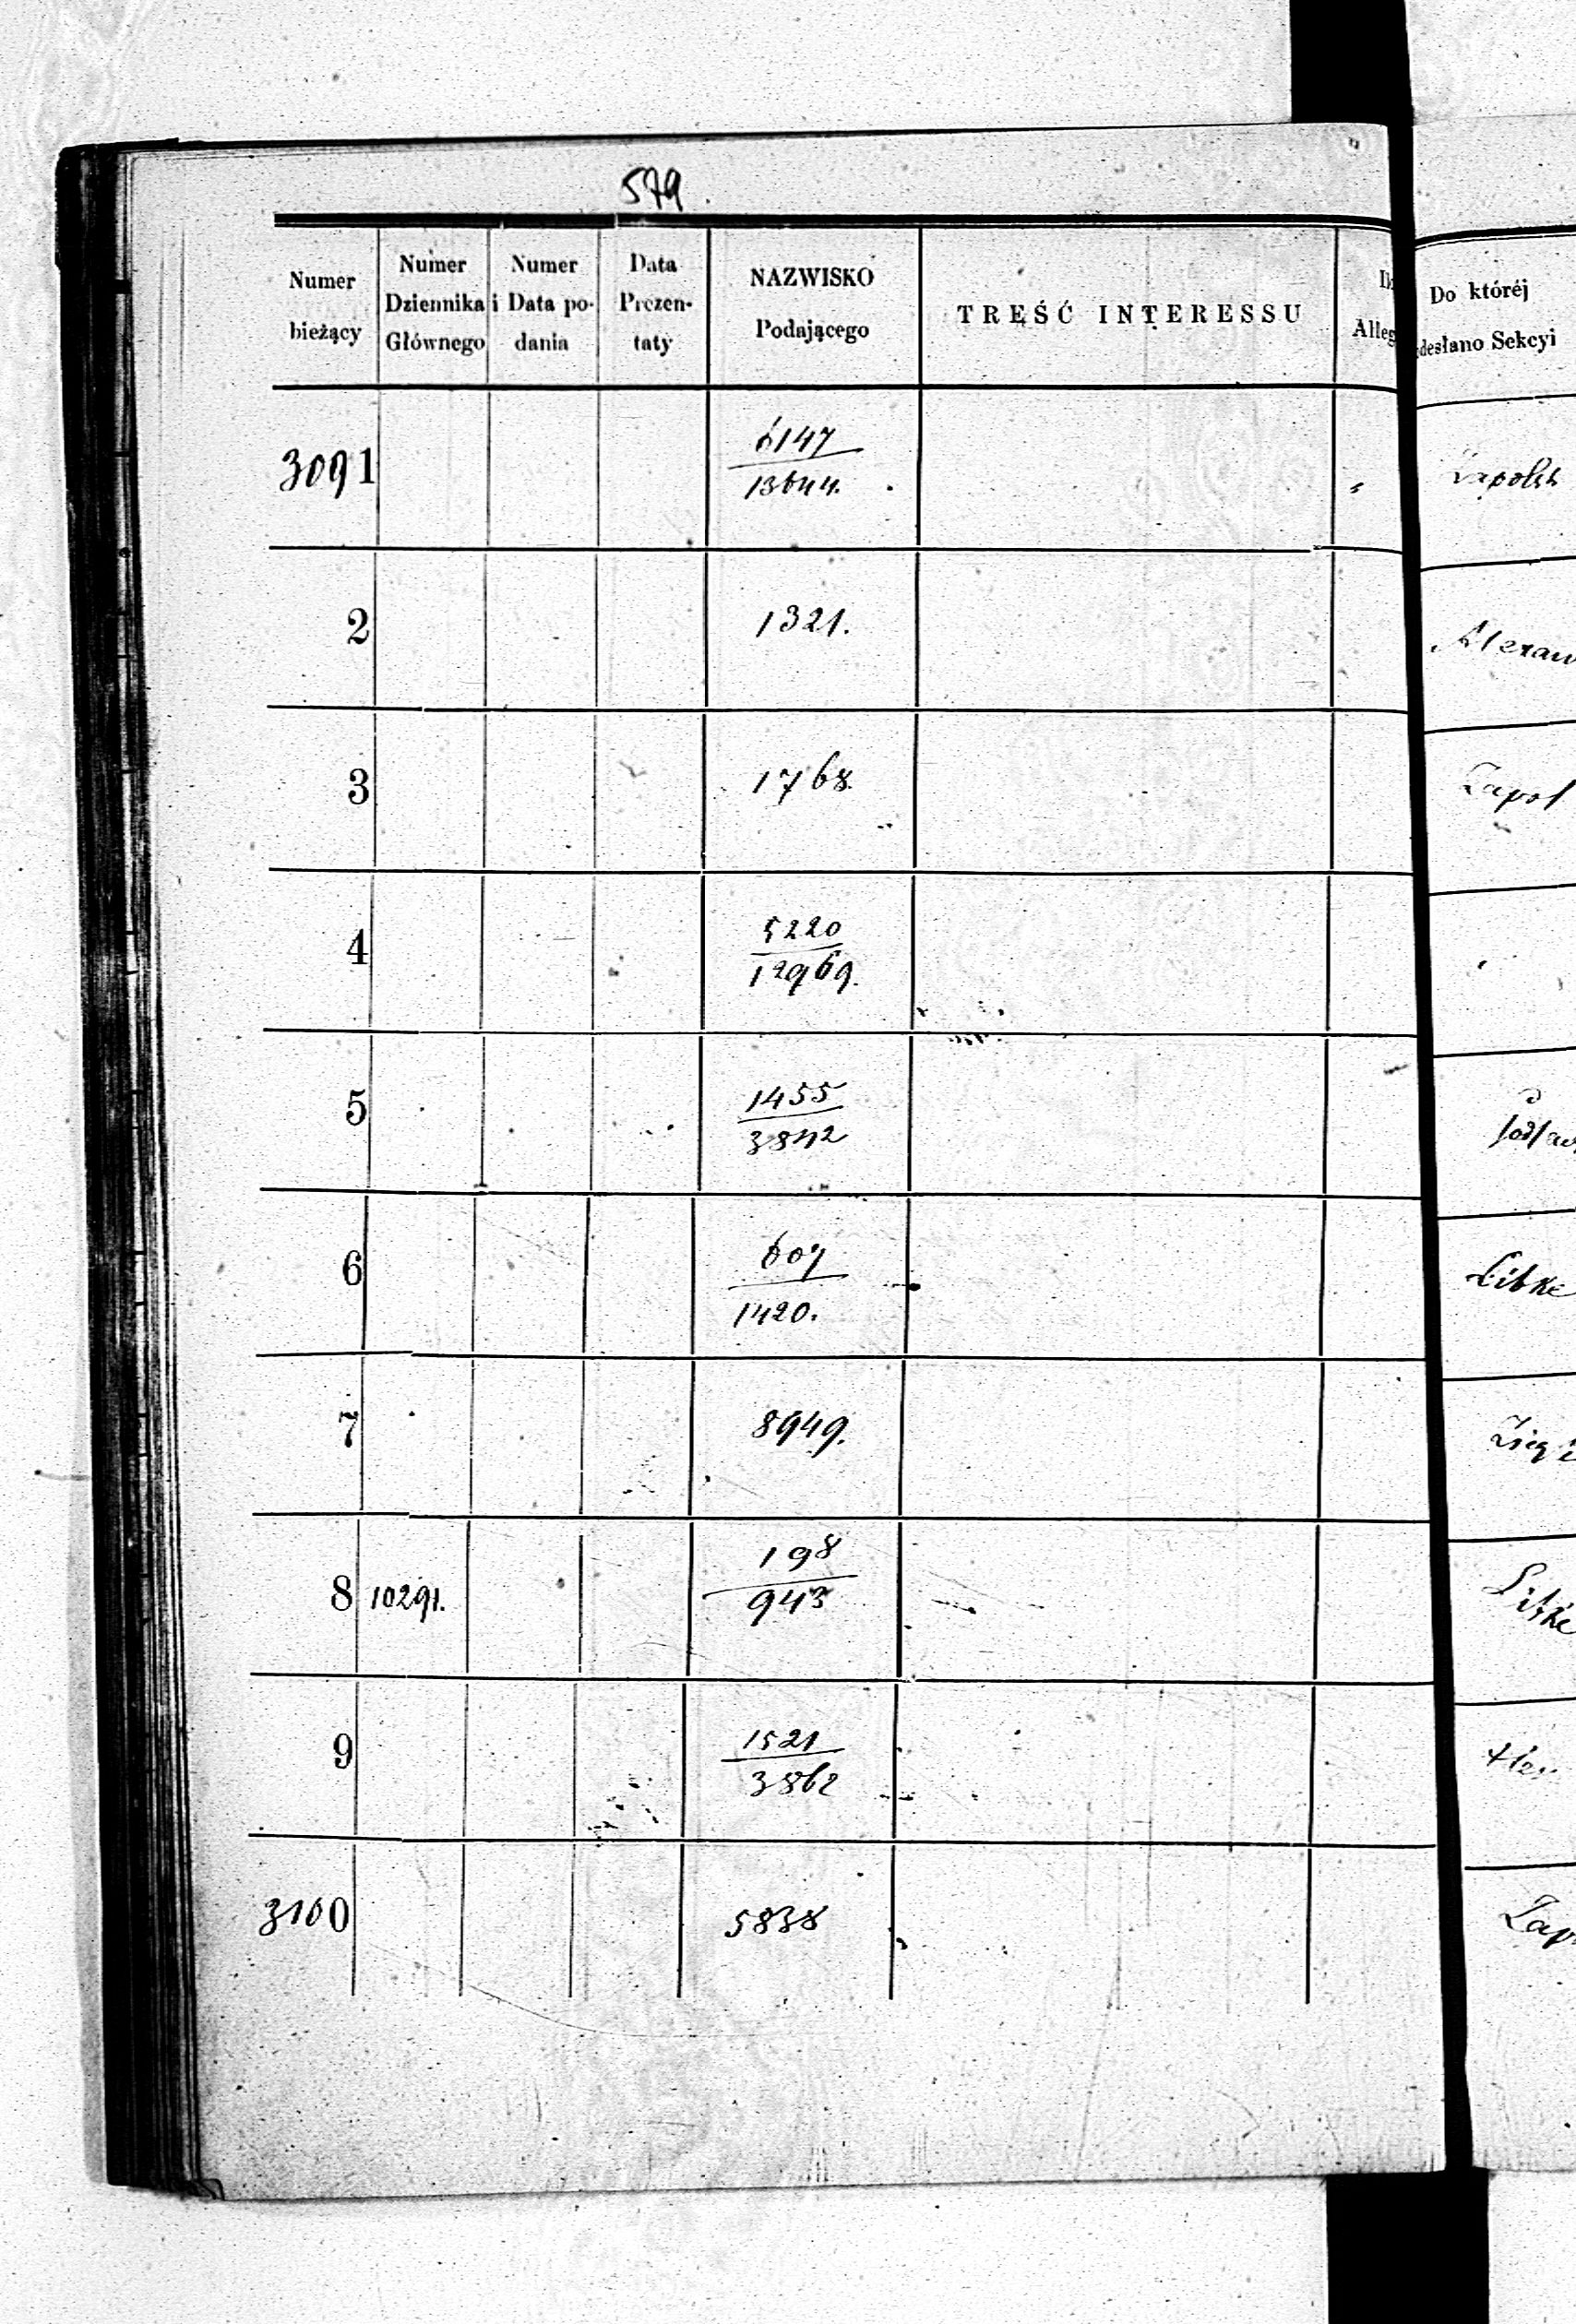 579.
Numer bieżący
Numer Dziennika Głównego
Numer i Data podania
Data Prezentaty
NAZWISKO Podającego
TREŚĆ INTERESSU
Alleg
Do któréj
desłano Sekcyi
3091
6147
13644.
2
1321.
3
1768.
4
5220
12969.
5
1455
3842
6
607
1420.
Libke
7
8949.
8 10291.
198
943
Libke
9
1521
3862
3100
5838